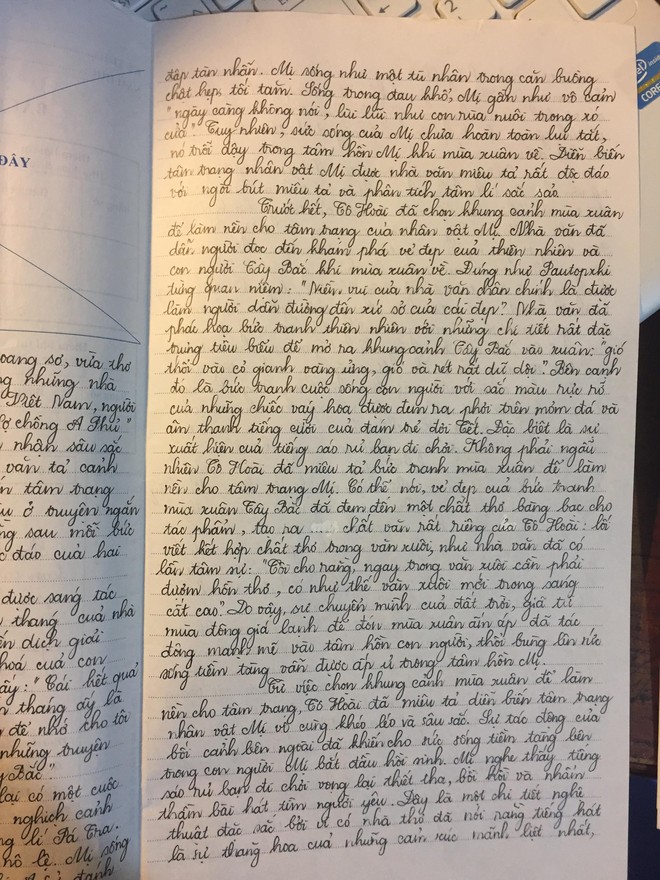 đập tàn nhẫn. Mị sống như một tù nhân trong căn buồng
chật hẹp, tối tăm. Sống trong đau khổ, Mị gần như vô cảm
"ngày càng không nói, lùi lũi như con rùa nuôi trong xó
cửa". Tuy nhiên, sức sống của Mị chưa hoàn toàn lụi tắt,
nó trỗi dậy trong tâm hồn Mị khi mùa xuân về. Diễn biến
tâm trạng nhân vật Mị được nhà văn miêu tả rất độc đáo
với ngòi bút miêu tả và phân tích tâm lí sắc sảo.
Trước hết, Tô Hoài đã chọn khung cảnh mùa xuân
để làm nền cho tâm trạng của nhân vật Mị. Nhà văn đã
dẫn người đọc đến khám phá vẻ đẹp của thiên nhiên và
con người Tây Bắc khi mùa xuân về. Đúng như Pautopxki
từng quan niệm: "Niềm vui của nhà văn chân chính là được
làm người dẫn đường đến xứ sở của cái đẹp". Nhà văn đã
phác họa bức tranh thiên nhiên với những chi tiết rất đặc
trưng tiêu biểu để mở ra khung cảnh Tây Bắc vào xuân: "gió
thổi vào cỏ gianh vàng ửng, gió và rét rất dữ dội". Bên cạnh
đó là bức tranh cuộc sống con người với sắc màu rực rỡ
của những chiếc váy hoa được đem ra phơi trên mỏm đá và
âm thanh tiếng cười của đám trẻ đợi Tết. Đặc biệt là sự
xuất hiện của tiếng sáo rủ bạn đi chơi. Không phải ngẫu
nhiên Tô Hoài đã miêu tả bức tranh mùa xuân để làm
nền cho tâm trạng Mị. Có thể nói, vẻ đẹp của bức tranh
mùa xuân Tây Bắc đã đem đến một chất thơ bàng bạc cho
tác phẩm, tạo ra chất văn rất riêng của Tô Hoài: lối
viết kết hợp chất thơ trong văn xuôi, như nhà văn đã có
lần tâm sự: "Tôi cho rằng, ngay trong văn xuôi cần phải
đượm hồn thơ, có như thế văn xuôi mới trong sáng
cất cao". Do vậy, sự chuyển mình của đất trời, giã từ
mùa đông giá lạnh để đón mùa xuân ấm áp đã tác
động mạnh mẽ vào tâm hồn con người, thổi bùng lên sức
sống tiềm tàng vẫn được ấp ủ trong tâm hồn Mị.
Từ việc chọn khung cảnh mùa xuân để làm
nền cho tâm trạng, Tô Hoài đã miêu tả diễn biến tâm trạng
nhân vật Mị vô cùng khéo léo và sâu sắc. Sự tác động của
bối cảnh bên ngoài đã khiến cho sức sống tiềm tàng bên
trong con người Mị bắt đầu hồi sinh. Mị nghe thấy tiếng
sáo rủ bạn đi chơi vọng lại thiết tha, bồi hồi và nhẩm
thầm bài hát tìm người yêu. Đây là một chi tiết nghệ
thuật đặc sắc bởi vì có nhà thơ đã nói rằng tiếng hát
là sự thăng hoa của những cảm xúc mãnh liệt nhất,
ĐÂY
oang sơ, vừa thơ
những nhà
Việt Nam, người
ợ chồng A Phủ"
nhận sâu sắc
văn tả cảnh
tâm trạng
ở truyện ngắn
ng sau mỗi bức
đáo của hai
được sáng tác
thang của nhà
ến dịch giải
hoá của con
ấy: "Cái kết quả
tháng ấy là
để nhớ cho tôi
những truyện
Bắc".
lại có một cuộc
nghịch cảnh
ng lí Pá Tra.
nô lệ. Mị sống
inside
CORE